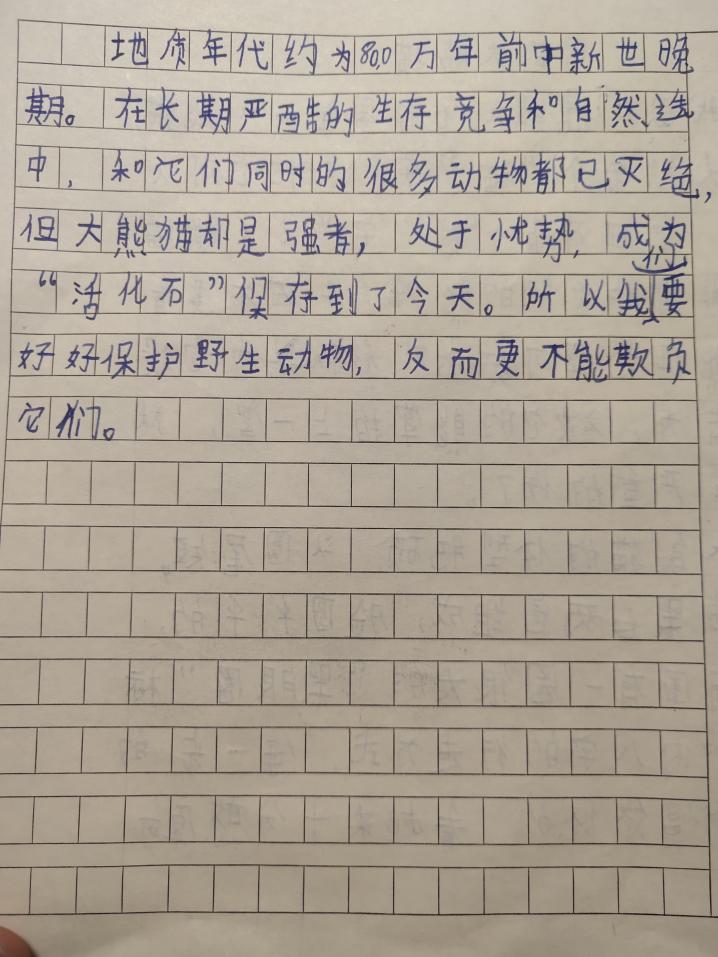 地质年代约为800万年前中新世晚
期。在长期严酷的生存竞争和自然选
中，和它们同时的很多动物都已灭绝，
但大熊猫却是强者，处于优势，成为
“活化石”保存到了今天。所以我们要
好好保护野生动物，反而更不能欺负
它们。